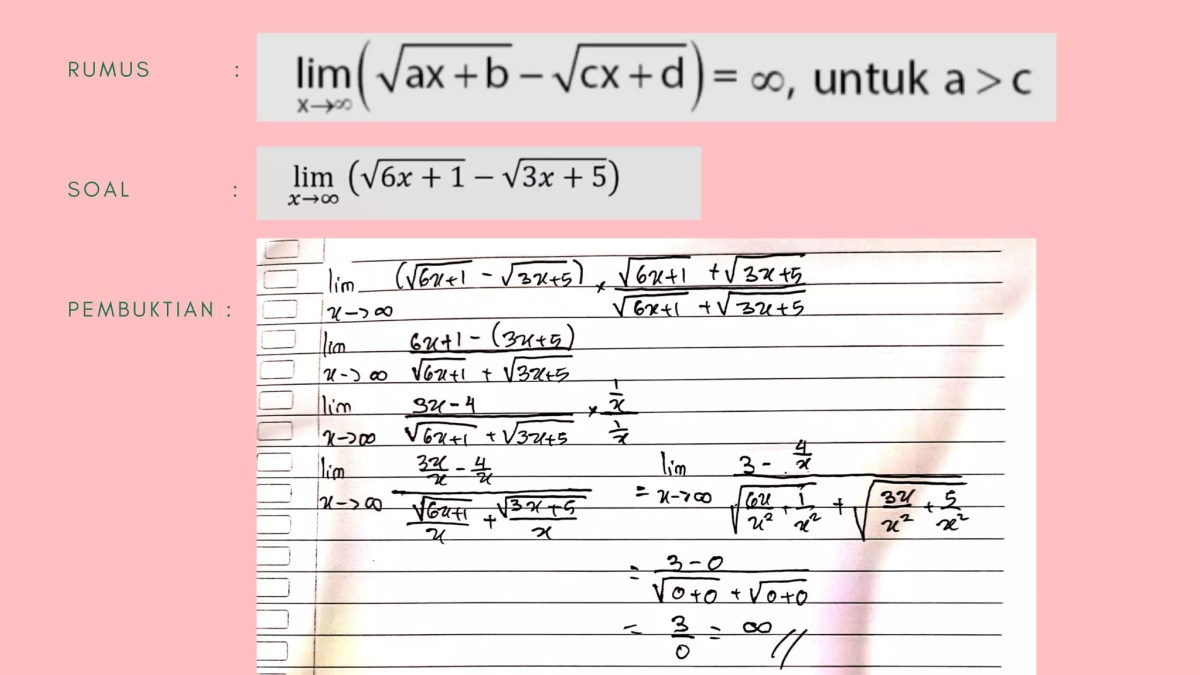 RUMUS : lim x→∞ (√(ax+b) − √(cx+d)) = ∞, untuk a > c
SOAL : lim x→∞ (√(6x + 1) − √(3x + 5))
PEMBUKTIAN :
lim x→∞ (√(6x+1) − √(3x+5)) × (√(6x+1) + √(3x+5))/(√(6x+1) + √(3x+5))
lim x→∞ (6x+1 − (3x+5))/(√(6x+1) + √(3x+5))
lim x→∞ (3x−4)/(√(6x+1) + √(3x+5)) × (1/x)/(1/x)
lim x→∞ (3x/x − 4/x)/(√(6x+1)/x + √(3x+5)/x) = lim x→∞ (3 − 4/x)/(√(6x/x² + 1/x²) + √(3x/x² + 5/x²))
= (3−0)/(√(0+0) + √(0+0))
= 3/0 = ∞ //